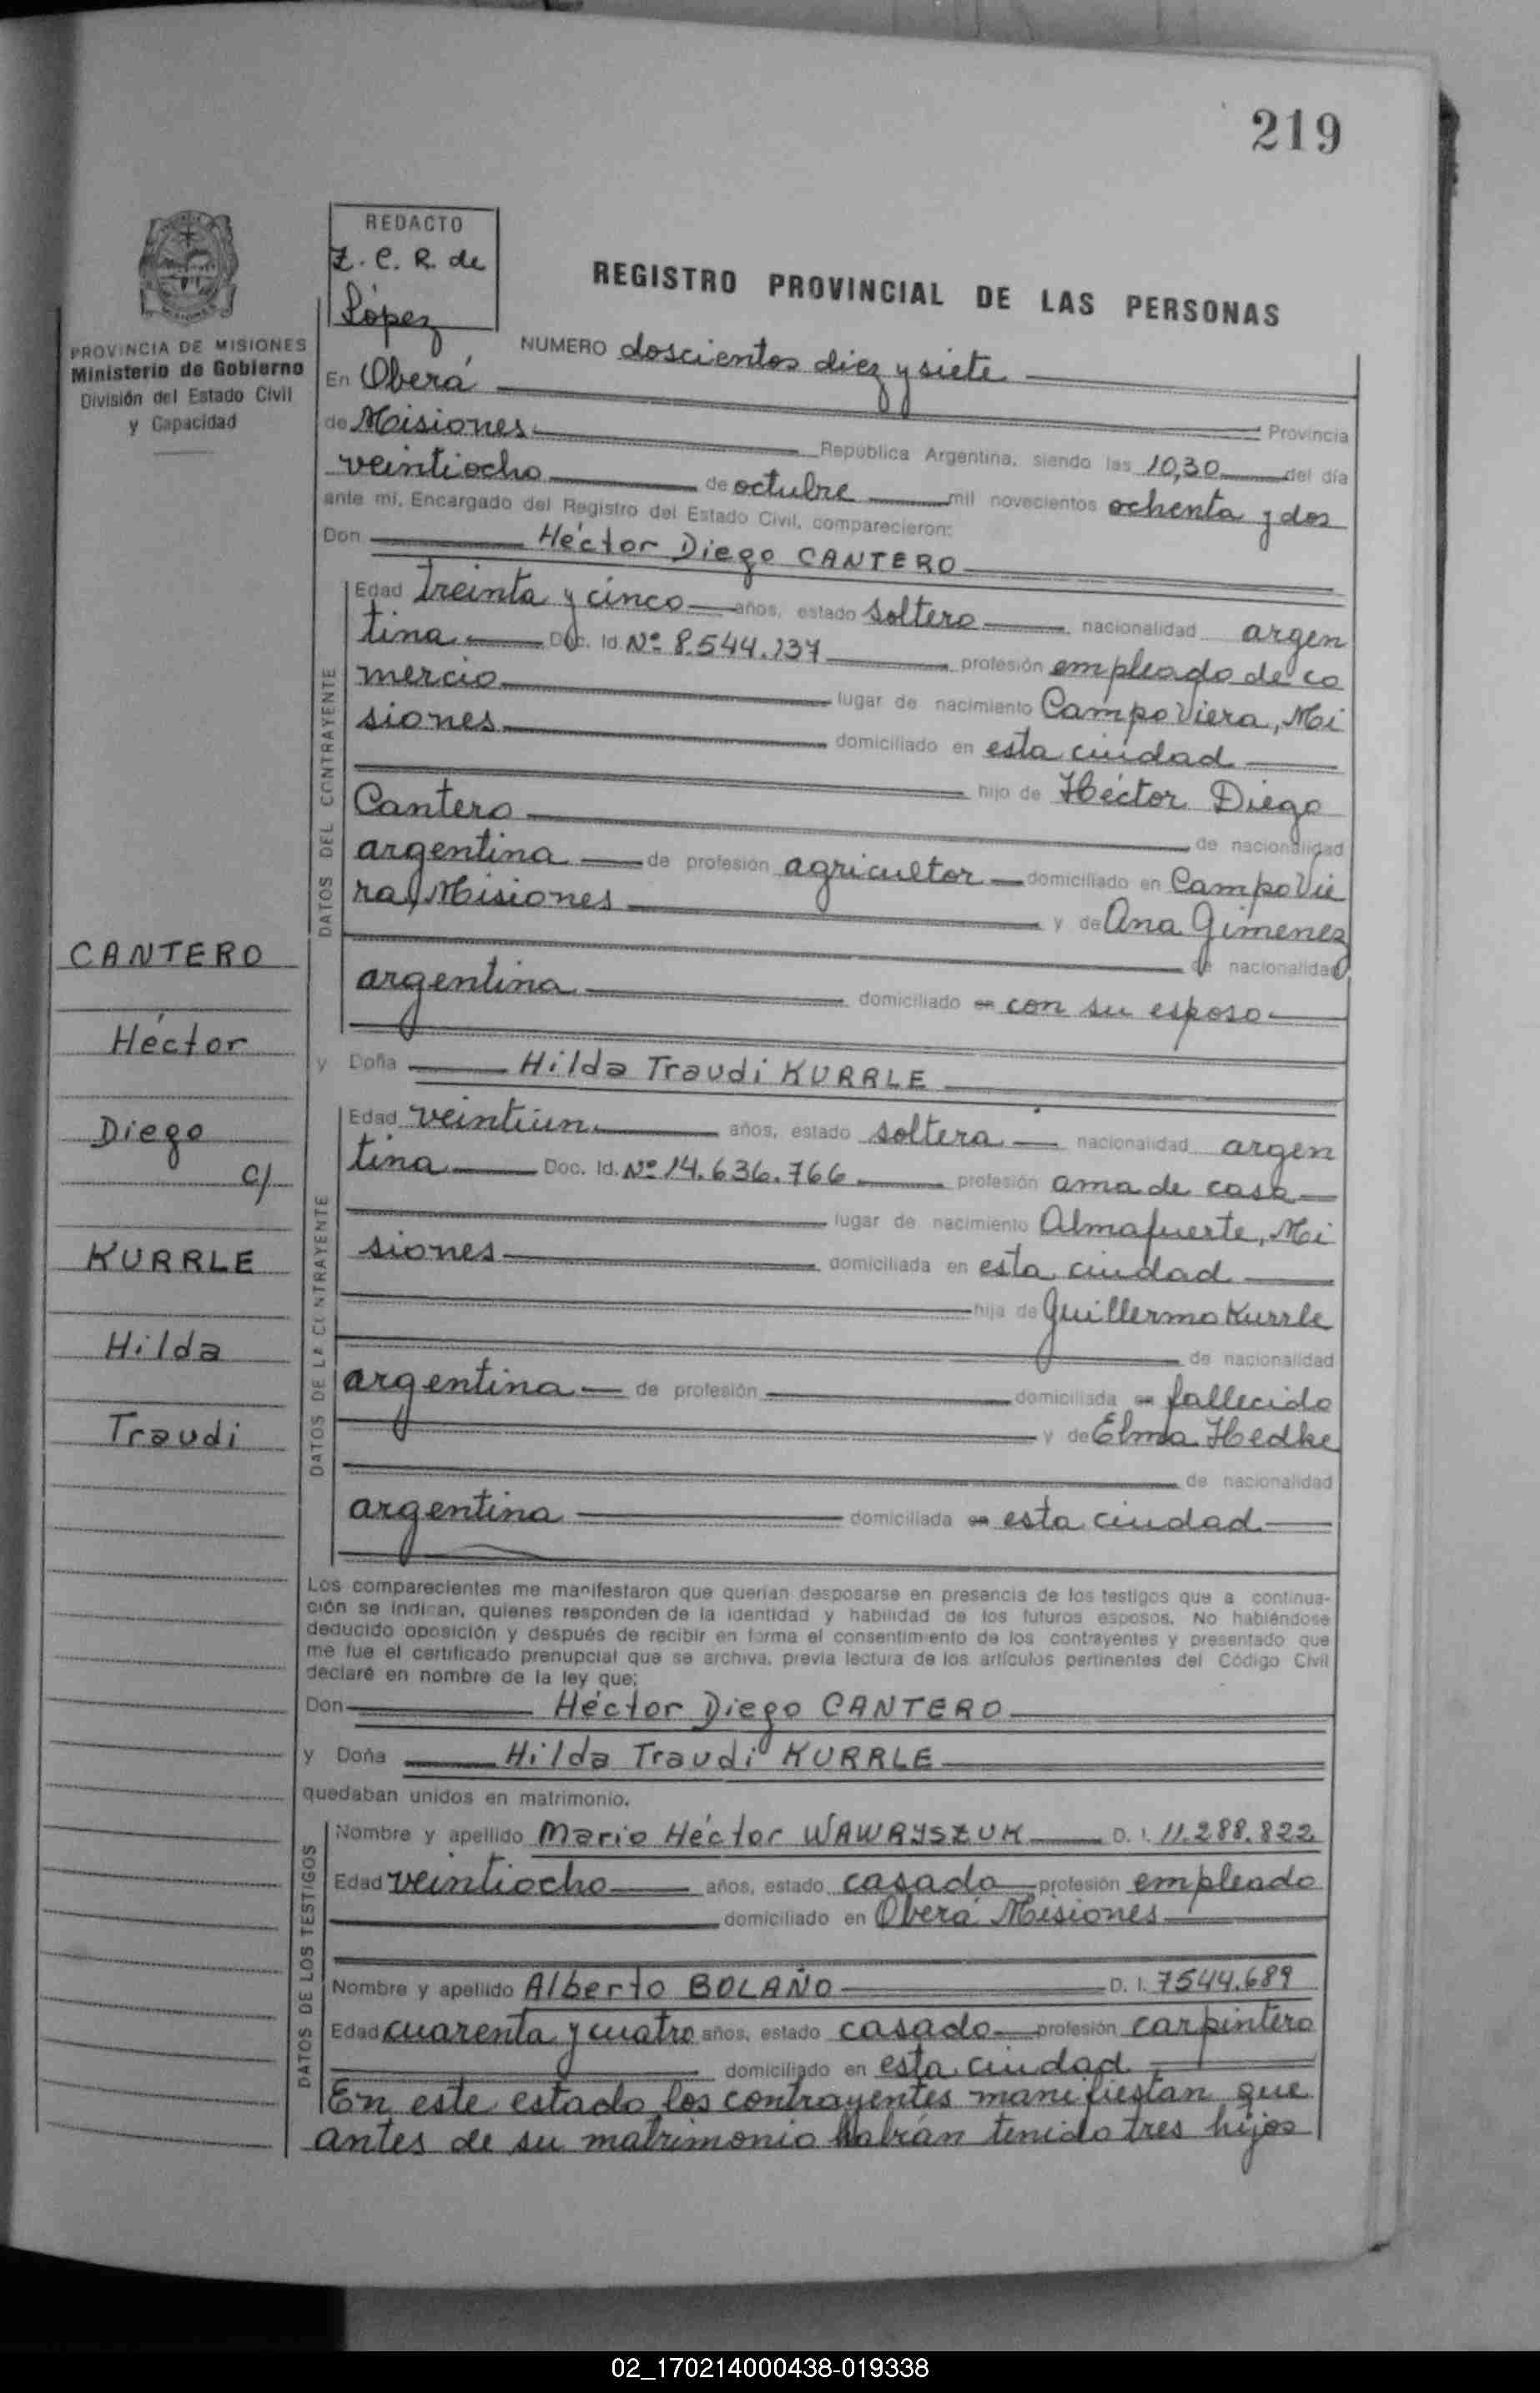 219
REDACTO
Z. C. R. de
López
REGISTRO PROVINCIAL DE LAS PERSONAS
PROVINCIA DE MISIONES
Ministerio de Gobierno
División del Estado Civil
y Capacidad
NUMERO doscientos diez y siete
En Oberá Provincia
de Misiones República Argentina, siendo las 10,30 del día
veintiocho de octubre mil novecientos ochenta y dos
ante mí, Encargado del Registro del Estado Civil, comparecieron:
Don Héctor Diego CANTERO
DATOS DEL CONTRAYENTE
Edad treinta y cinco años, estado soltero nacionalidad argen
tina Doc. Id. Nº 8.544.137 profesión empleado de co
mercio lugar de nacimiento Campo Viera, Mi
siones domiciliado en esta ciudad
hijo de Héctor Diego
Cantero de nacionalidad
argentina de profesión agricultor domiciliado en Campo Vie
ra, Misiones y de Ana Gimenez
de nacionalidad
argentina domiciliado en con su esposo
y Doña Hilda Traudi KURRLE
DATOS DE LA CONTRAYENTE
Edad veintiún años, estado soltera nacionalidad argen
tina Doc. Id. Nº 14.636.766 profesión ama de casa
lugar de nacimiento Almafuerte, Mi
siones domiciliada en esta ciudad
hija de Guillermo Kurrle
de nacionalidad
argentina de profesión domiciliada en fallecido
y de Elma Hedke
de nacionalidad
argentina domiciliada en esta ciudad
CANTERO
Héctor
Diego
c/
KURRLE
Hilda
Traudi
Los comparecientes me manifestaron que querían desposarse en presencia de los testigos que a continua-
ción se indican, quienes responden de la identidad y habilidad de los futuros esposos. No habiéndose
deducido oposición y después de recibir en forma el consentimiento de los contrayentes y presentado que
me fue el certificado prenupcial que se archiva, previa lectura de los artículos pertinentes del Código Civil
declaré en nombre de la ley que:
Don Héctor Diego CANTERO
y Doña Hilda Traudi KURRLE
quedaban unidos en matrimonio.
DATOS DE LOS TESTIGOS
Nombre y apellido Mario Héctor WAWRYSZUK D. I. 11.288.822
Edad veintiocho años, estado casado profesión empleado
domiciliado en Oberá Misiones
Nombre y apellido Alberto BOLAÑO D. I. 7544.689
Edad cuarenta y cuatro años, estado casado profesión carpintero
domiciliado en esta ciudad
En este estado los contrayentes manifiestan que
antes de su matrimonio habían tenido tres hijos
02_170214000438-019338